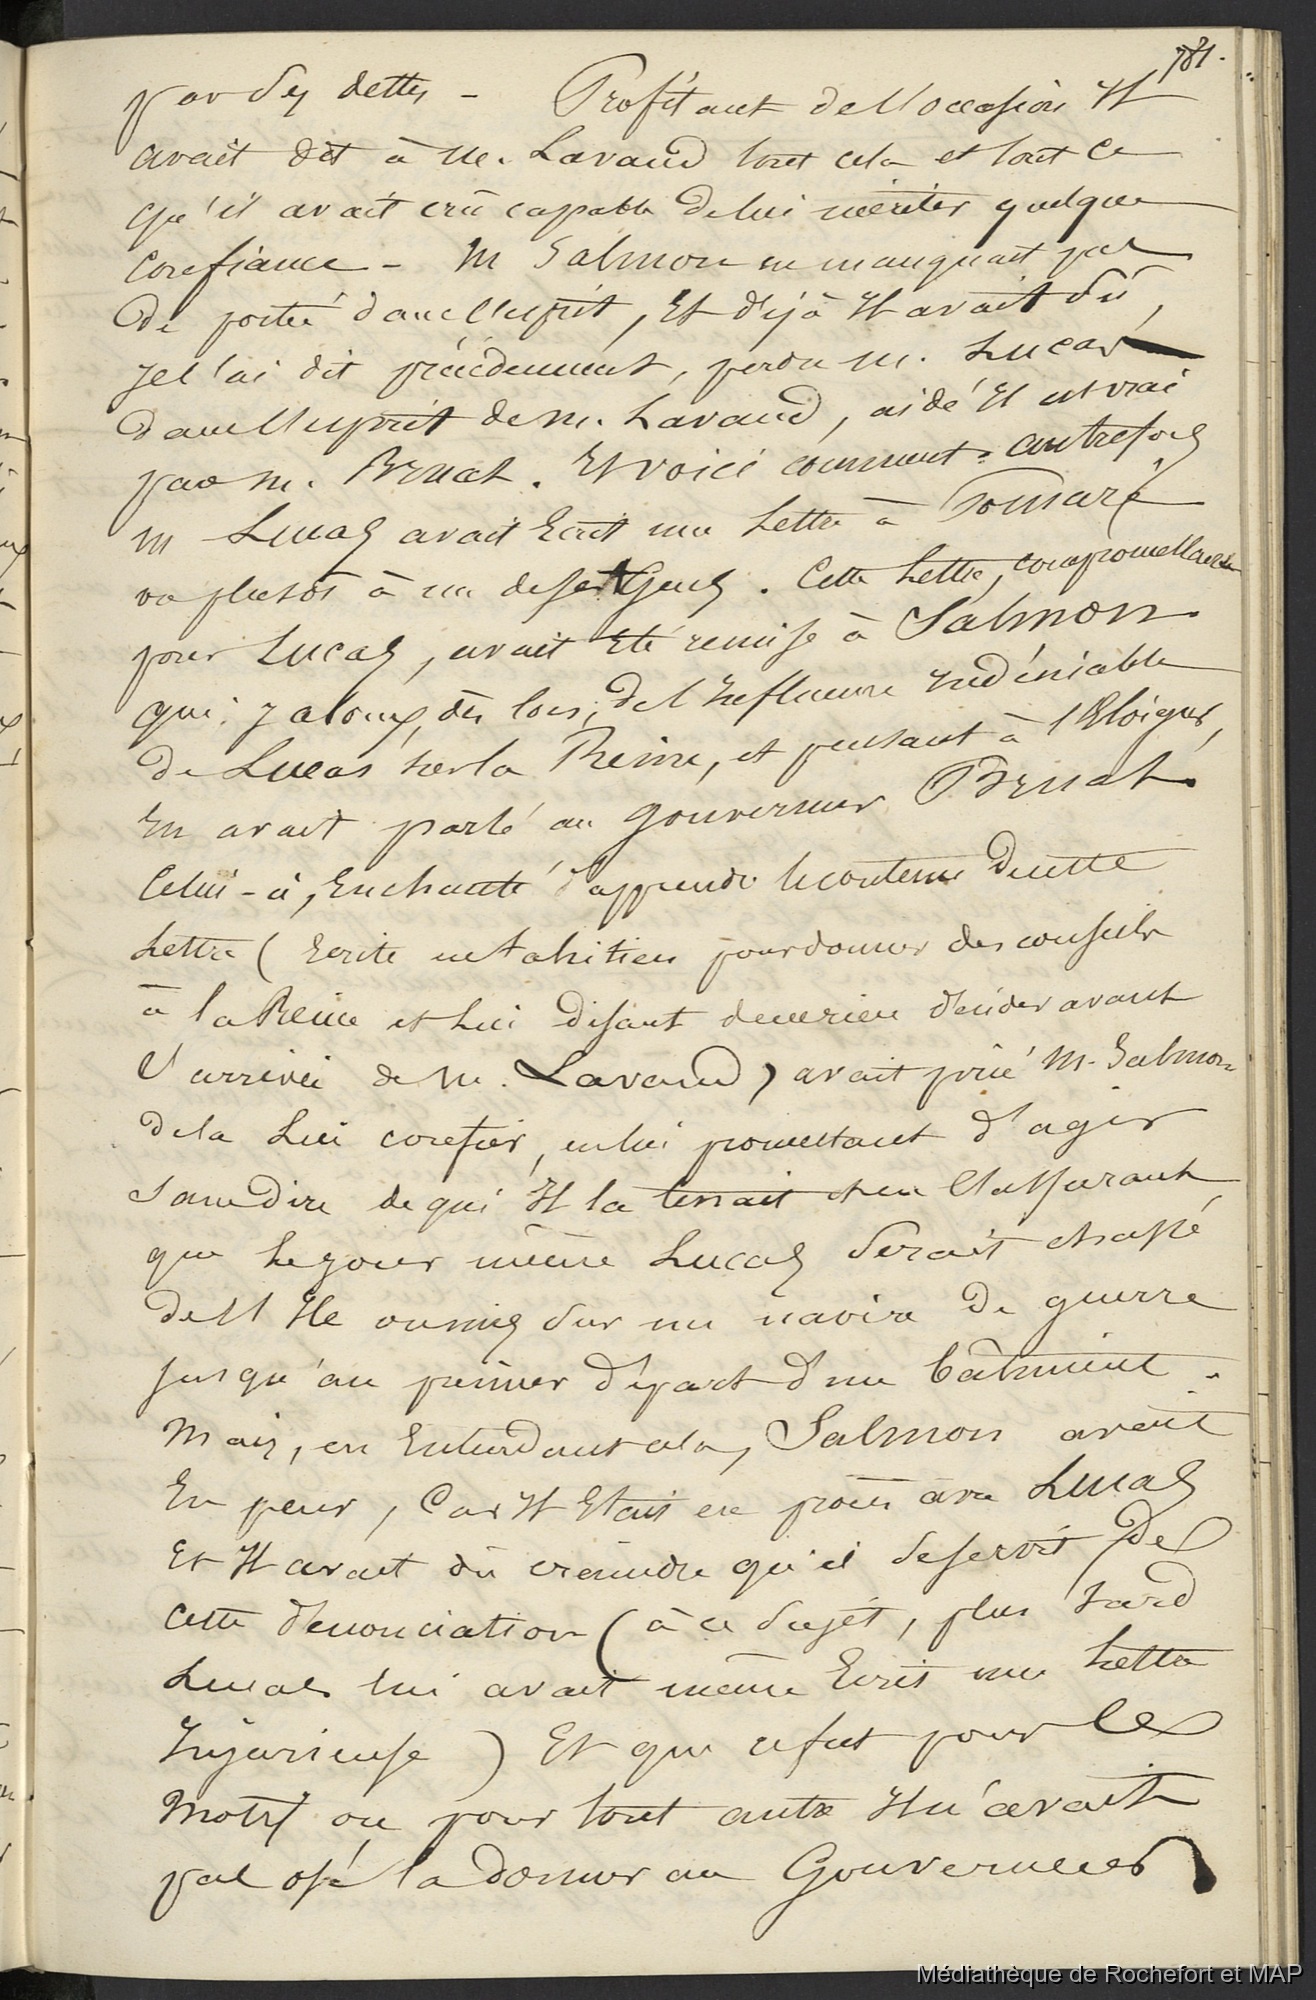 781.
par des dettes - Profitant de l'occasion Il
avait dit à M. Lavaud tout cela et tout ce
qu'il avait crû capable de lui mériter quelque
confiance - M Salmon ne manquait pas
de portée dans l'esprit, Et déjà Il avait sû,
je l'ai dit précédemment, perdre M. Lucas
dans l'esprit de M. Lavaud, aidé Il est vrai
par M. Bruat. Et voici comment. autrefois
M Lucas avait Ecrit une Lettre à Pomaré
ou plutôt à un de ses Gens. Cette Lettre, compromettante
pour Lucas, avait Eté remise à Salmon
qui, jaloux, dès lors, de l'Influence Indéniable
de Lucas sur la Reine, et pensant à l'Eloigner,
En avait parlé au gouverneur Bruat.
Celui-ci, Enchanté d'apprendre le contenu de cette
Lettre (Ecrite en tahitien pour donner des conseils
à la Reine et lui disant de ne rien décider avant
l'arrivée de M. Lavaud) avait prié M. Salmon
de la lui confier, en lui promettant d'agir
sans dire de qui Il la tenait et en l'assurant
que le jour même Lucas serait chassé
de l'Ile ou mis sur un navire de guerre
jusqu'au premier départ d'un bâtiment.
Mais, en Entendant cela, Salmon avait
Eu peur, Car Il Etait en procès avec Lucas
Et Il avait dû craindre qu'il se servît de
cette dénonciation (à ce sujet, plus tard
Lucas lui avait même Ecrit une Lettre
Injurieuse) Et que ce fut pour ce
motif ou pour tout autre Il n'avait
pas osé la donner au Gouverneur
Médiathèque de Rochefort et MAP